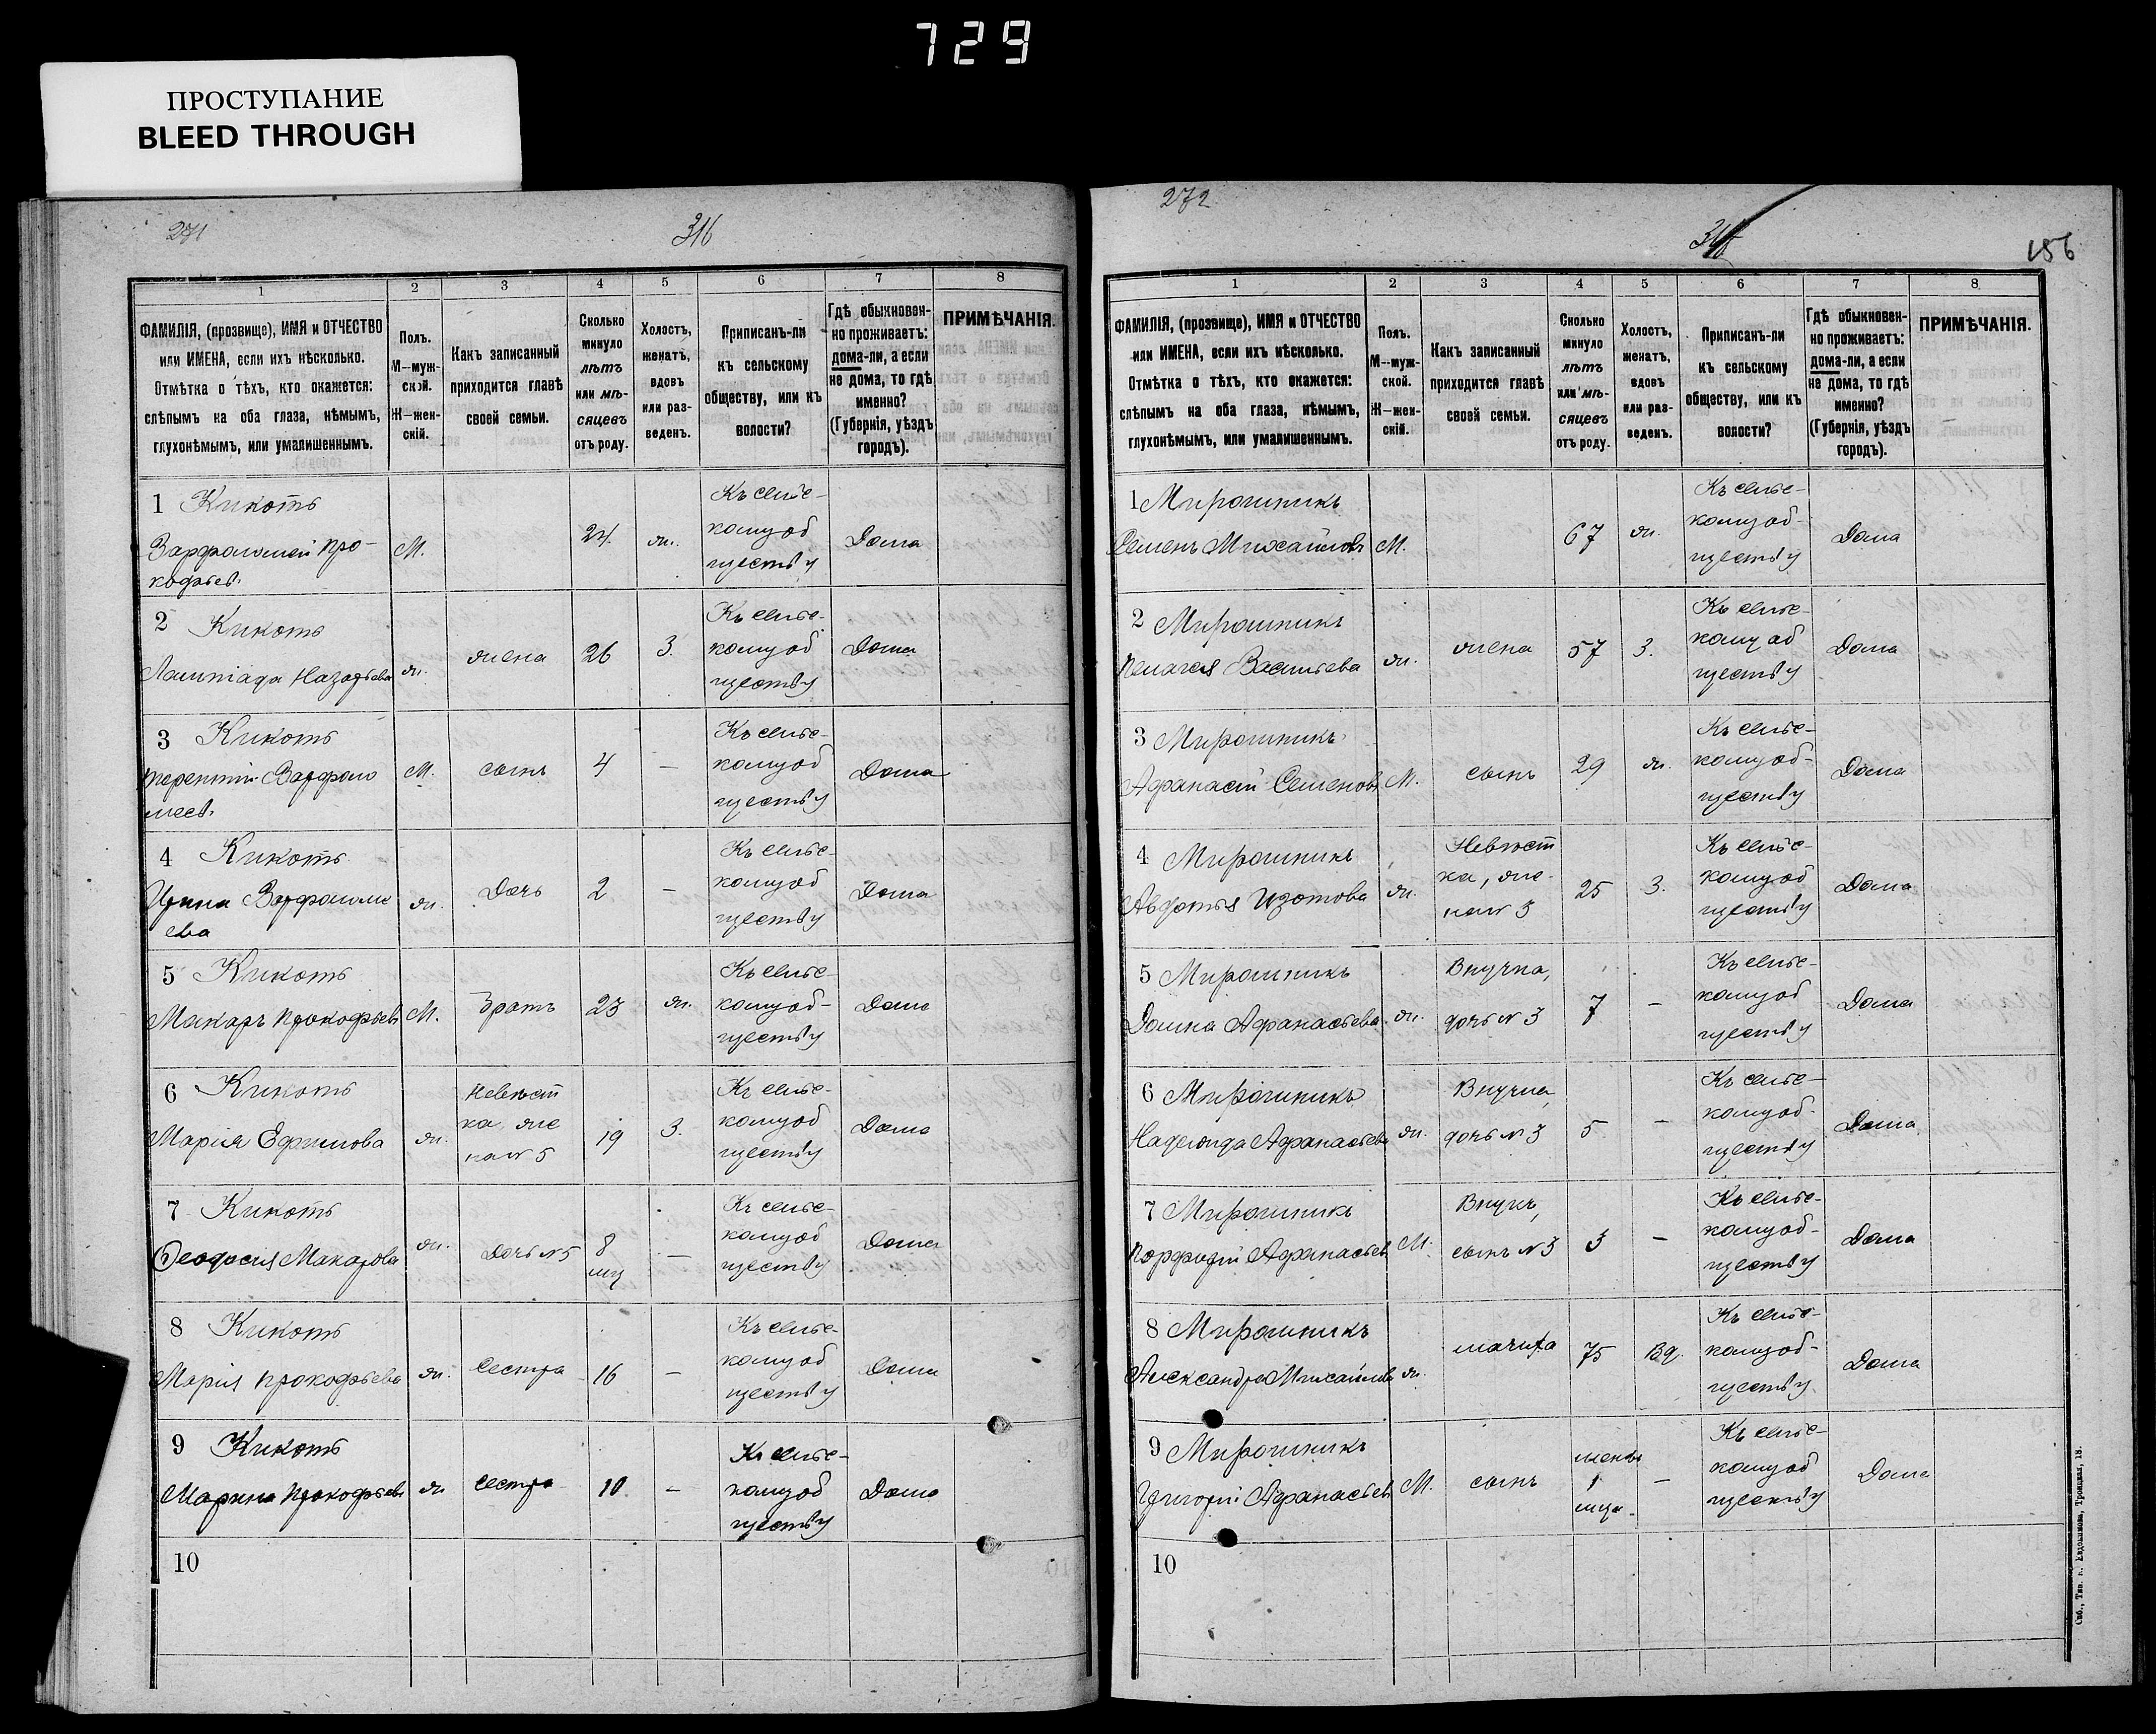 729
ПРОСТУПАНИЕ
BLEED THROUGH
271
316
1 2 3 4 5 6 7 8
ФАМИЛІЯ, (прозвище), ИМЯ и ОТЧЕСТВО или ИМЕНА, если ихъ нѣсколько. Отмѣтка о тѣхъ, кто окажется: слѣпымъ на оба глаза, нѣмымъ, глухонѣмымъ, или умалишеннымъ.
Полъ. М—мужской. Ж—женскій.
Какъ записанный приходится главѣ своей семьи.
Сколько минуло лѣтъ или мѣсяцевъ отъ роду.
Холостъ, женатъ, вдовъ или разведенъ.
Приписанъ-ли къ сельскому обществу, или къ волости?
Гдѣ обыкновенно проживаетъ: дома-ли, а если не дома, то гдѣ именно? (Губернія, уѣздъ городъ).
ПРИМѢЧАНІЯ.
1 Кикоть Варфоломей Прокофьев. М. 24 ж. Къ сельскому обществу Дома
2 Кикоть Лампіада Назарьева ж. жена 26 З. Къ сельскому обществу Дома
3 Кикоть Терентій Варфоломеев. М. сынъ 4 — Къ сельскому обществу Дома
4 Кикоть Ирина Варфоломеева ж. Дочь 2 — Къ сельскому обществу Дома
5 Кикоть Макаръ Прокофьевъ М. Братъ 23 ж. Къ сельскому обществу Дома
6 Кикоть Марія Ефимова ж. Невѣстка, жена № 5 19 З. Къ сельскому обществу Дома
7 Кикоть Феодосія Макарова ж. Дочь № 5 8 мц — Къ сельскому обществу Дома
8 Кикоть Марія Прокофьева ж. Сестра 16 — Къ сельскому обществу Дома
9 Кикоть Марина Прокофьева ж Сестра 10 — Къ сельскому обществу Дома
10
272
156
1 2 3 4 5 6 7 8
ФАМИЛІЯ, (прозвище), ИМЯ и ОТЧЕСТВО или ИМЕНА, если ихъ нѣсколько. Отмѣтка о тѣхъ, кто окажется: слѣпымъ на оба глаза, нѣмымъ, глухонѣмымъ, или умалишеннымъ.
Полъ. М—мужской. Ж—женскій.
Какъ записанный приходится главѣ своей семьи.
Сколько минуло лѣтъ или мѣсяцевъ отъ роду.
Холостъ, женатъ, вдовъ или разведенъ.
Приписанъ-ли къ сельскому обществу, или къ волости?
Гдѣ обыкновенно проживаетъ: дома-ли, а если не дома, то гдѣ именно? (Губернія, уѣздъ городъ).
ПРИМѢЧАНІЯ.
1 Мирошникъ Семенъ Михайловъ М. 67 ж. Къ сельскому обществу Дома
2 Мирошникъ Пелагея Васильева ж. жена 57 З. Къ сельскому обществу Дома
3 Мирошникъ Афанасій Семеновъ М. сынъ 29 ж. Къ сельскому обществу Дома
4 Мирошникъ Авдотья Изотова ж. Невѣстка, жена № 3 25 З. Къ сельскому обществу Дома
5 Мирошникъ Домна Афанасьева ж. Внучка, дочь № 3 7 — Къ сельскому обществу Дома
6 Мирошникъ Надежда Афанасьева ж. Внучка, дочь № 3 5 — Къ сельскому обществу Дома
7 Мирошникъ Порфирій Афанасьев М. Внукъ, сынъ № 3 3 — Къ сельскому обществу Дома
8 Мирошникъ Александра Михайлова ж. мачиха 75 Вд. Къ сельскому обществу Дома
9 Мирошникъ Григорій Афанасьев М. сынъ 1 — Къ сельскому обществу Дома
10
Спб., Тип. в. Евдокимова, Троицкая, 18.